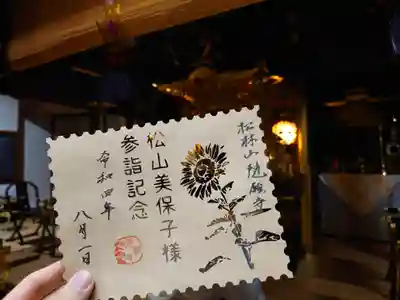 松林山 施願寺
松山美保子様
参詣記念
令和四年
八月一日